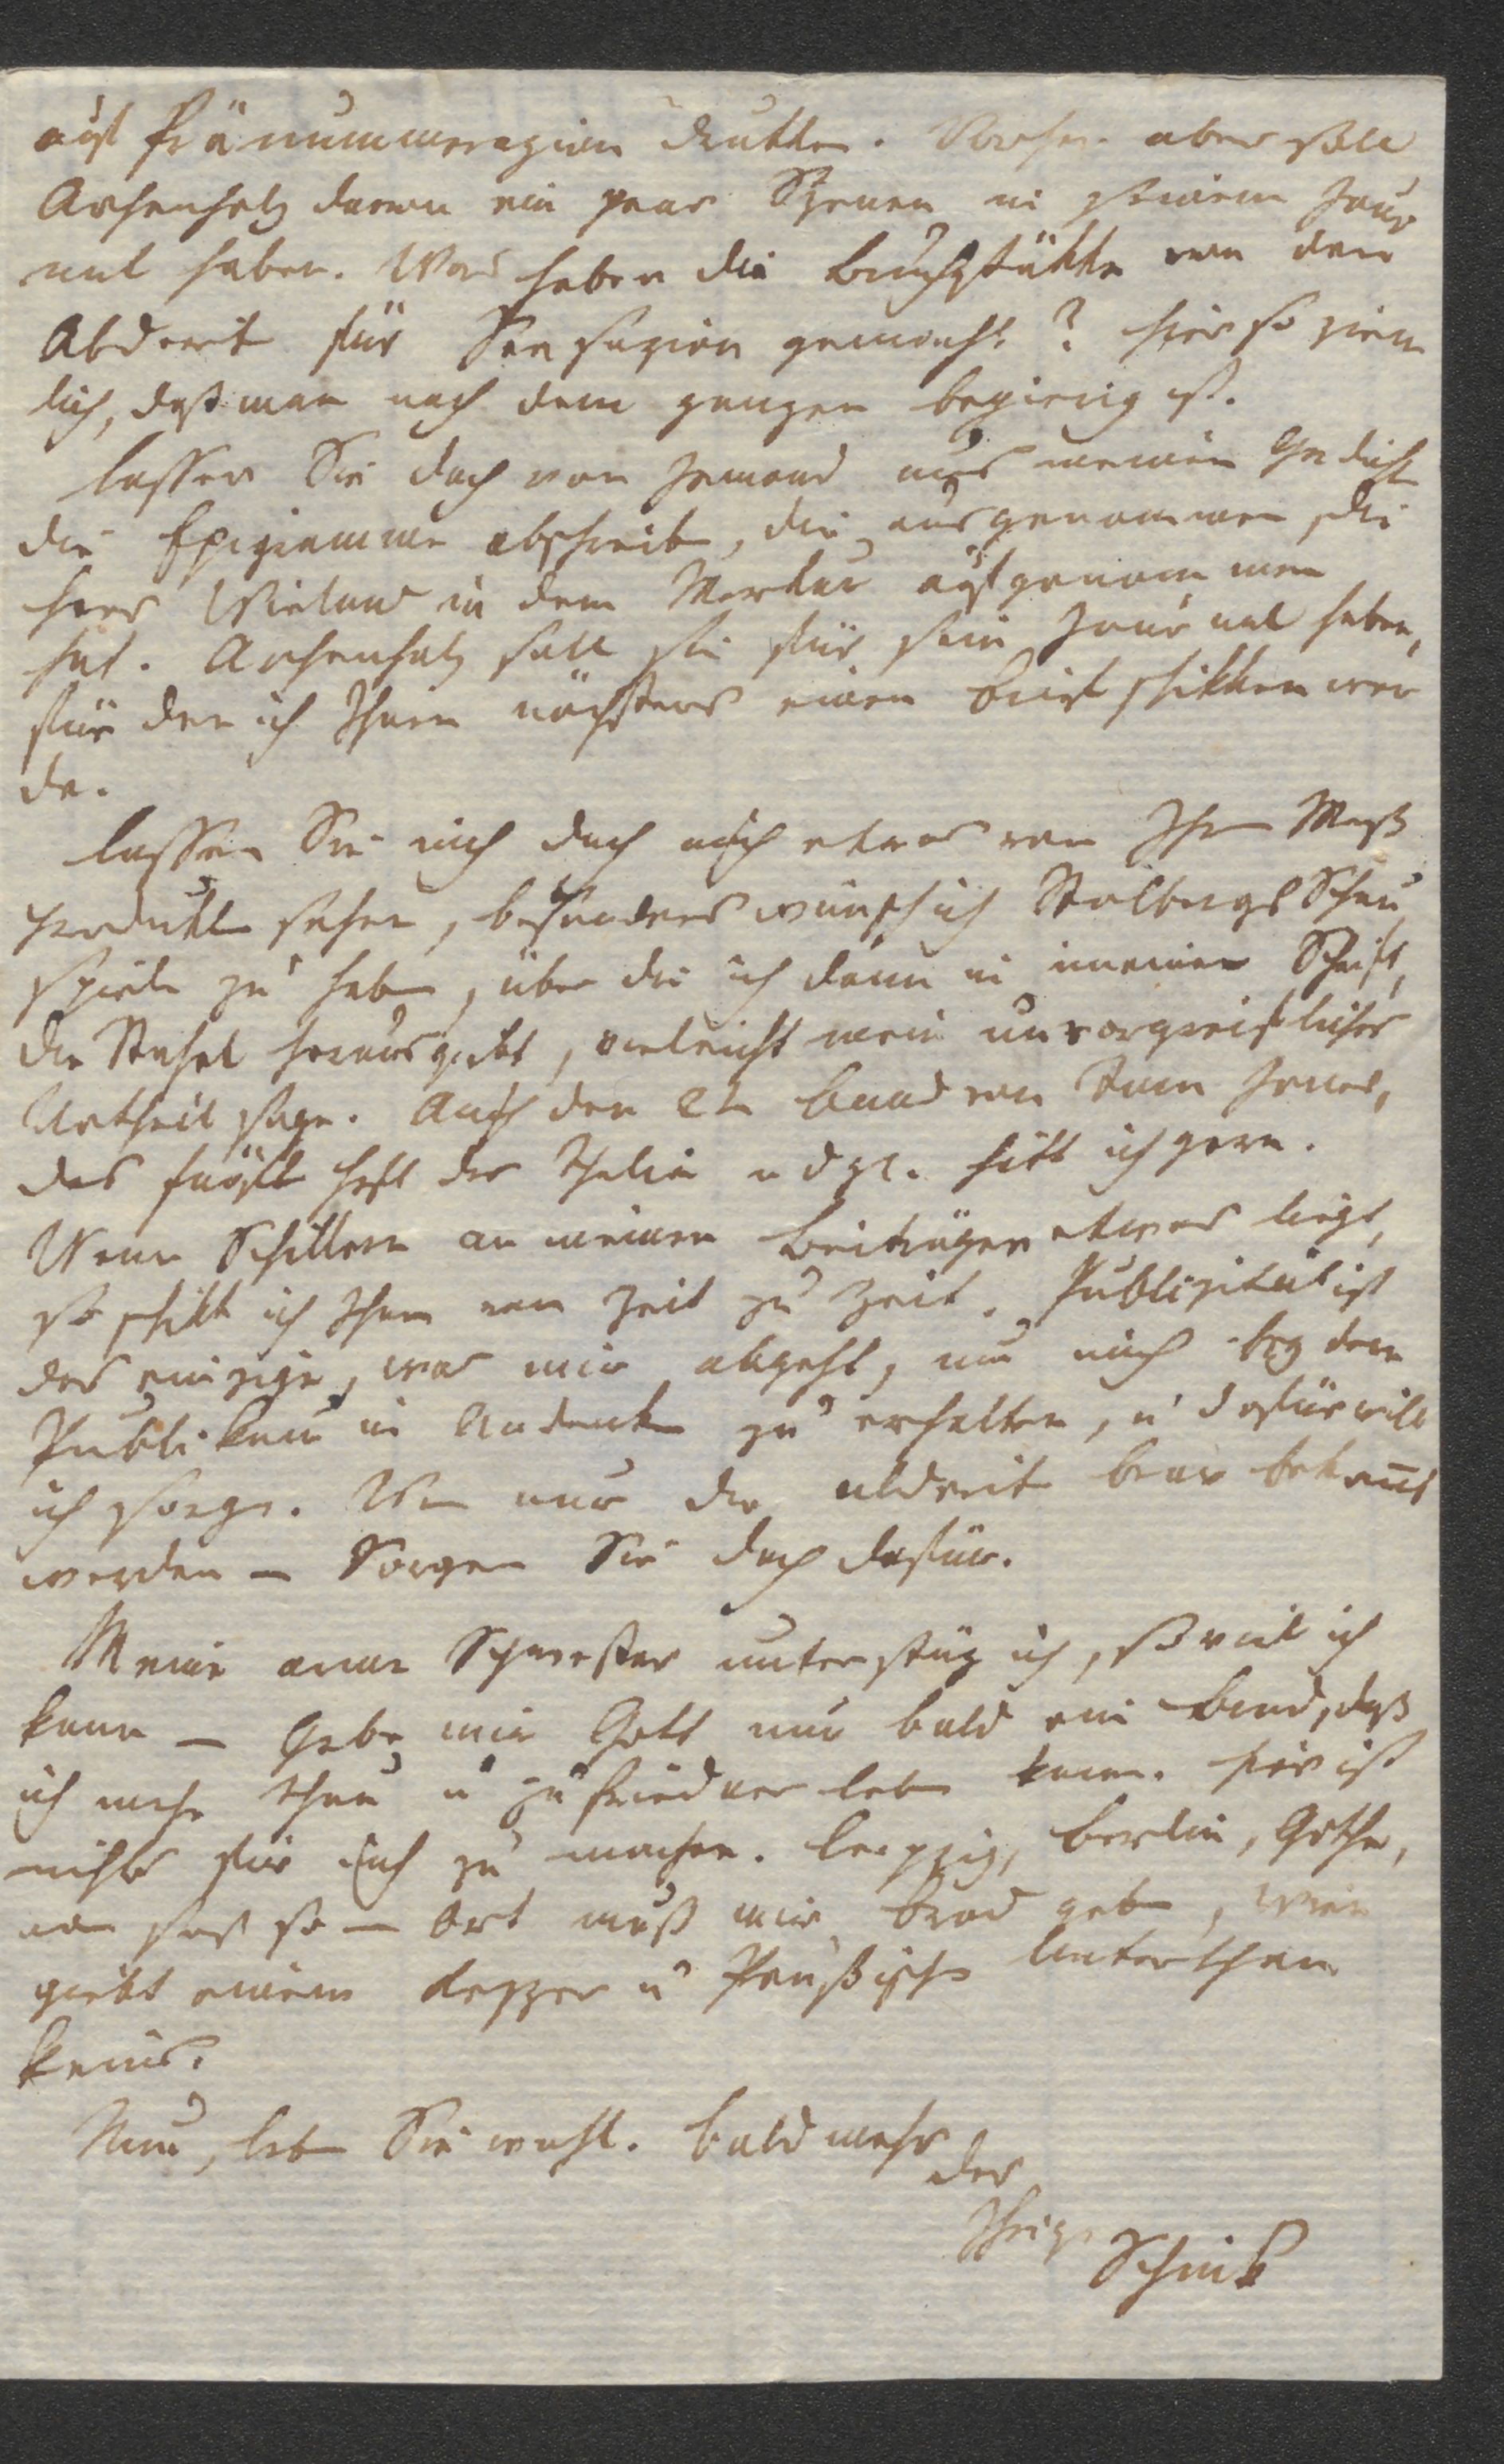 auf Pränummerazion drukken. Vorher aber soll
Archenholz davon ein paar Szenen in seinem Jour
nal haben. Was haben die Bruchstükke von dem
Abderit für Sensazion gemacht? hier so ziem
lich, daß man nach dem ganzen begierig ist.
Lassen Sie doch von Jemand aus meinen Gedicht
die Epigramme abschreib, die ausgenommen, die
Herr Wieland in dem Merkur aufgenommen
hat. Archenholz soll sie für sein Journal haben,
für den ich Ihnen nächstens einen Brief schikken wer
de.
Lassen Sie mich doch auch etwas von Ihren Meß
produkten sehen, besonders wünsch ich Stolbergs Schau
spiele zu haben, über die ich dann in meiner Schrift,
die Stahel herausgiebt, vieleicht mein unvorgreifliches
Urtheil sage. Auch den 2t Band von Tom Jones,
das fünfte Heft der Thalia u dgl. hätt ich gern.
Wenn Schillern an meinen Beiträgen etwas liegt,
so schikk ich Ihm von Zeit zu Zeit. Publizität ist
das einzige, was mir abgeht, um mich bey dem
Publikum in Andenken zu erhalten, u dafür will
ich sorgen. Wenn nur die Abderit brav bekannt
werden – Sorgen Sie doch dafür.
Meine arme Schwester unterstüz ich, so viel ich
kann – Gebe mir Gott nur bald ein Brod, daß
ich mehr thun u zufriedner leben kann. hier ist
nichts für mich zu machen. Leipzig, Berlin, Gotha,
oder sonst so ein Ort muß mir Brod geben, Wien
giebt einem Kezzer u Preußischen Unterthan
keins.
Nun, leben Sie wohl. Bald mehr
der
Ihrige Schink